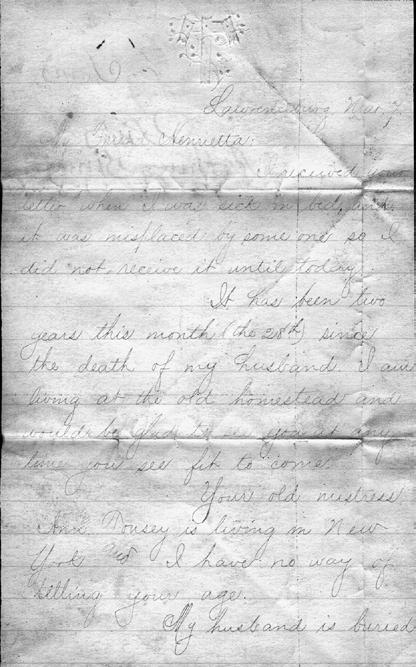 Lawrenceburg Mar 7,
My Friend Henrietta:
I received your
letter when I was sick in bed, and
it was misplaced by some one so I
did not receive it until today.
It has been two
years this month (the 28th) since
the death of my husband. I am
living at the old homestead and
would be glad to see you at any
time you see fit to come.
Your old mistress
Ann Dowsey is living in New
York and I have no way of
telling your age.
My husband is buried